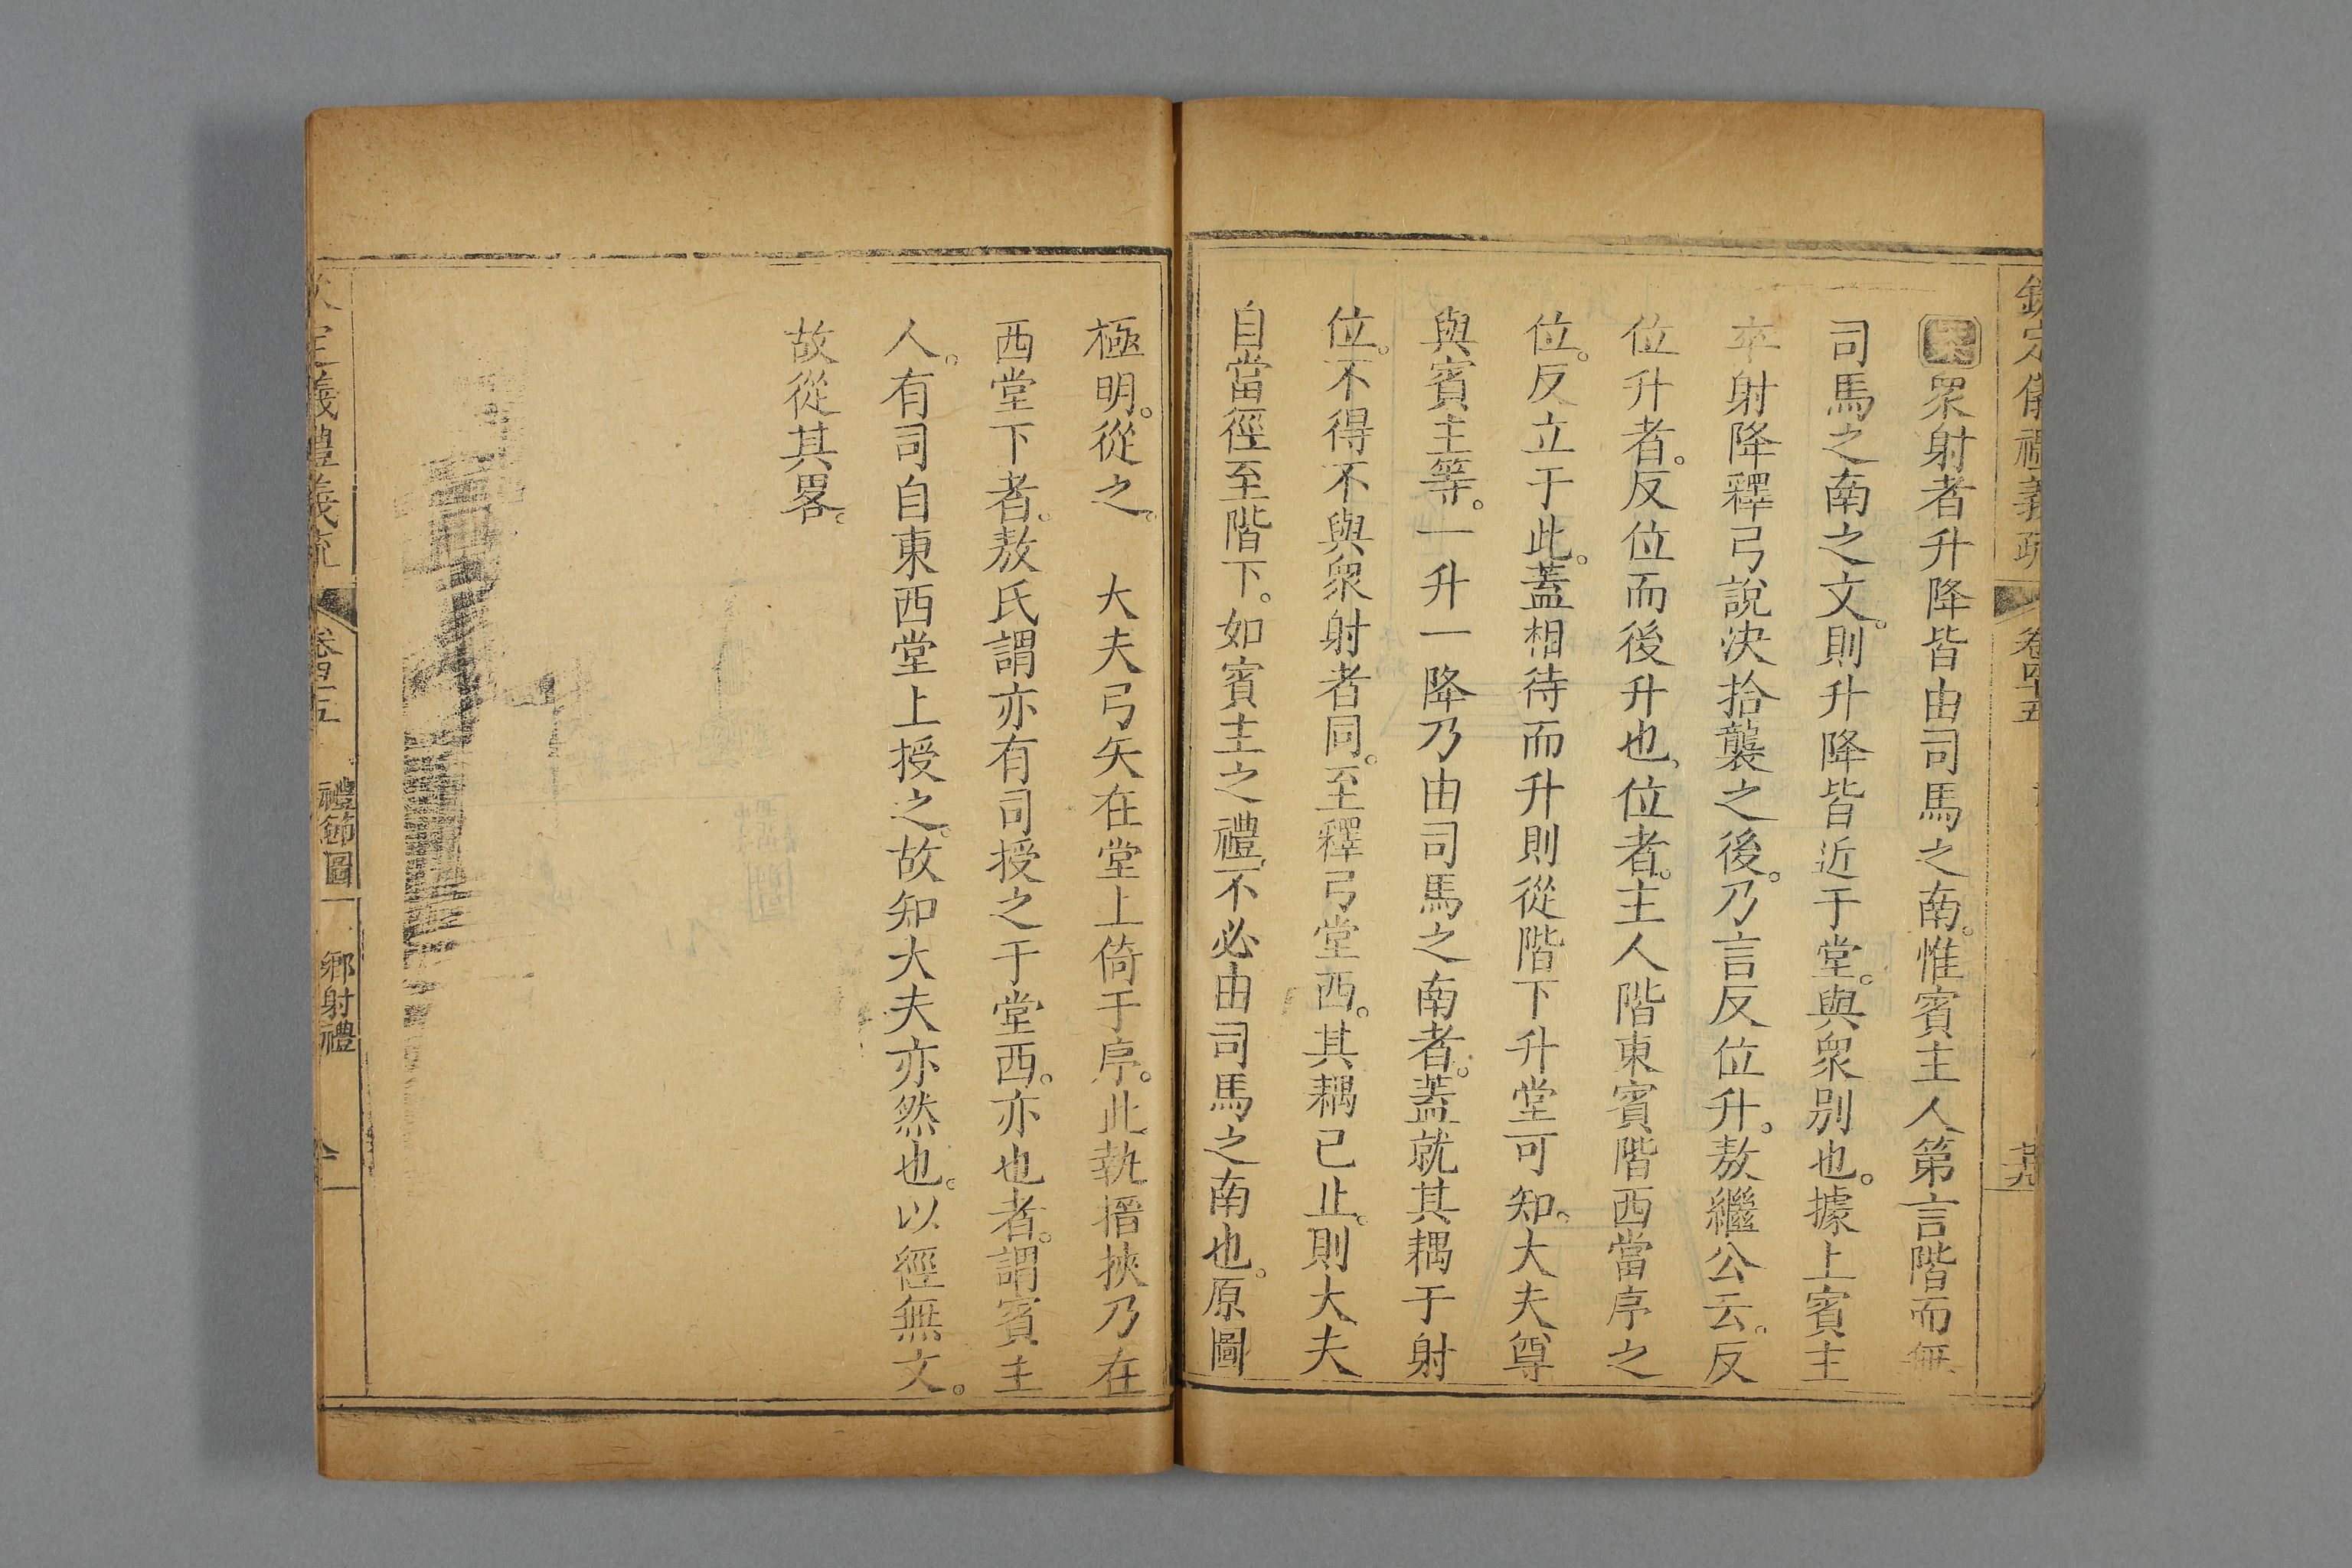 欽定儀禮義疏 卷四十五
案衆射者升降皆由司馬之南。惟賓主人第言階而無
司馬之南之文。則升降皆近于堂。與衆别也。據上賓主
卒射降釋弓說決拾襲之後。乃言反位升。敖繼公云。反
位升者。反位而後升也。位者。主人階東賓階西當序之
位。反立于此。蓋相待而升則從階下升堂可知。大夫尊
與賓主等。一升一降乃由司馬之南者。蓋就其耦于射
位。不得不與衆射者同。至釋弓堂西。其耦已止。則大夫
自當徑至階下。如賓主之禮。不必由司馬之南也。原圖
極明。從之。　大夫弓矢在堂上倚于序。此執搢挾乃在
西堂下者。敖氏謂亦有司授之于堂西。亦也者。謂賓主
人。有司自東西堂上授之。故知大夫亦然也。以經無文。
故從其畧。
欽定儀禮義疏 卷四十五 禮節圖一 鄉射禮